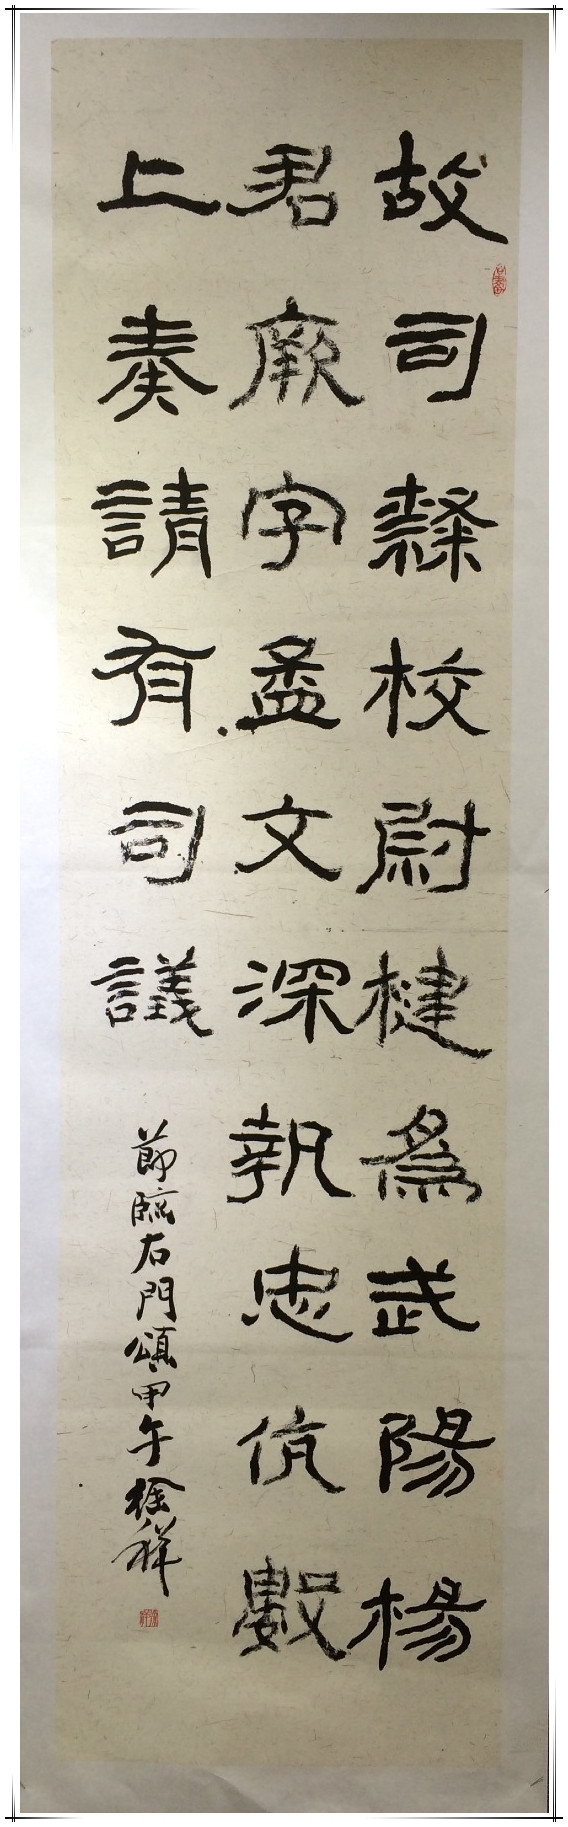 故司隸校尉楗爲武陽楊
君厥字孟文深執忠伉數
上奏請有司議
節臨石門頌甲午徐祥